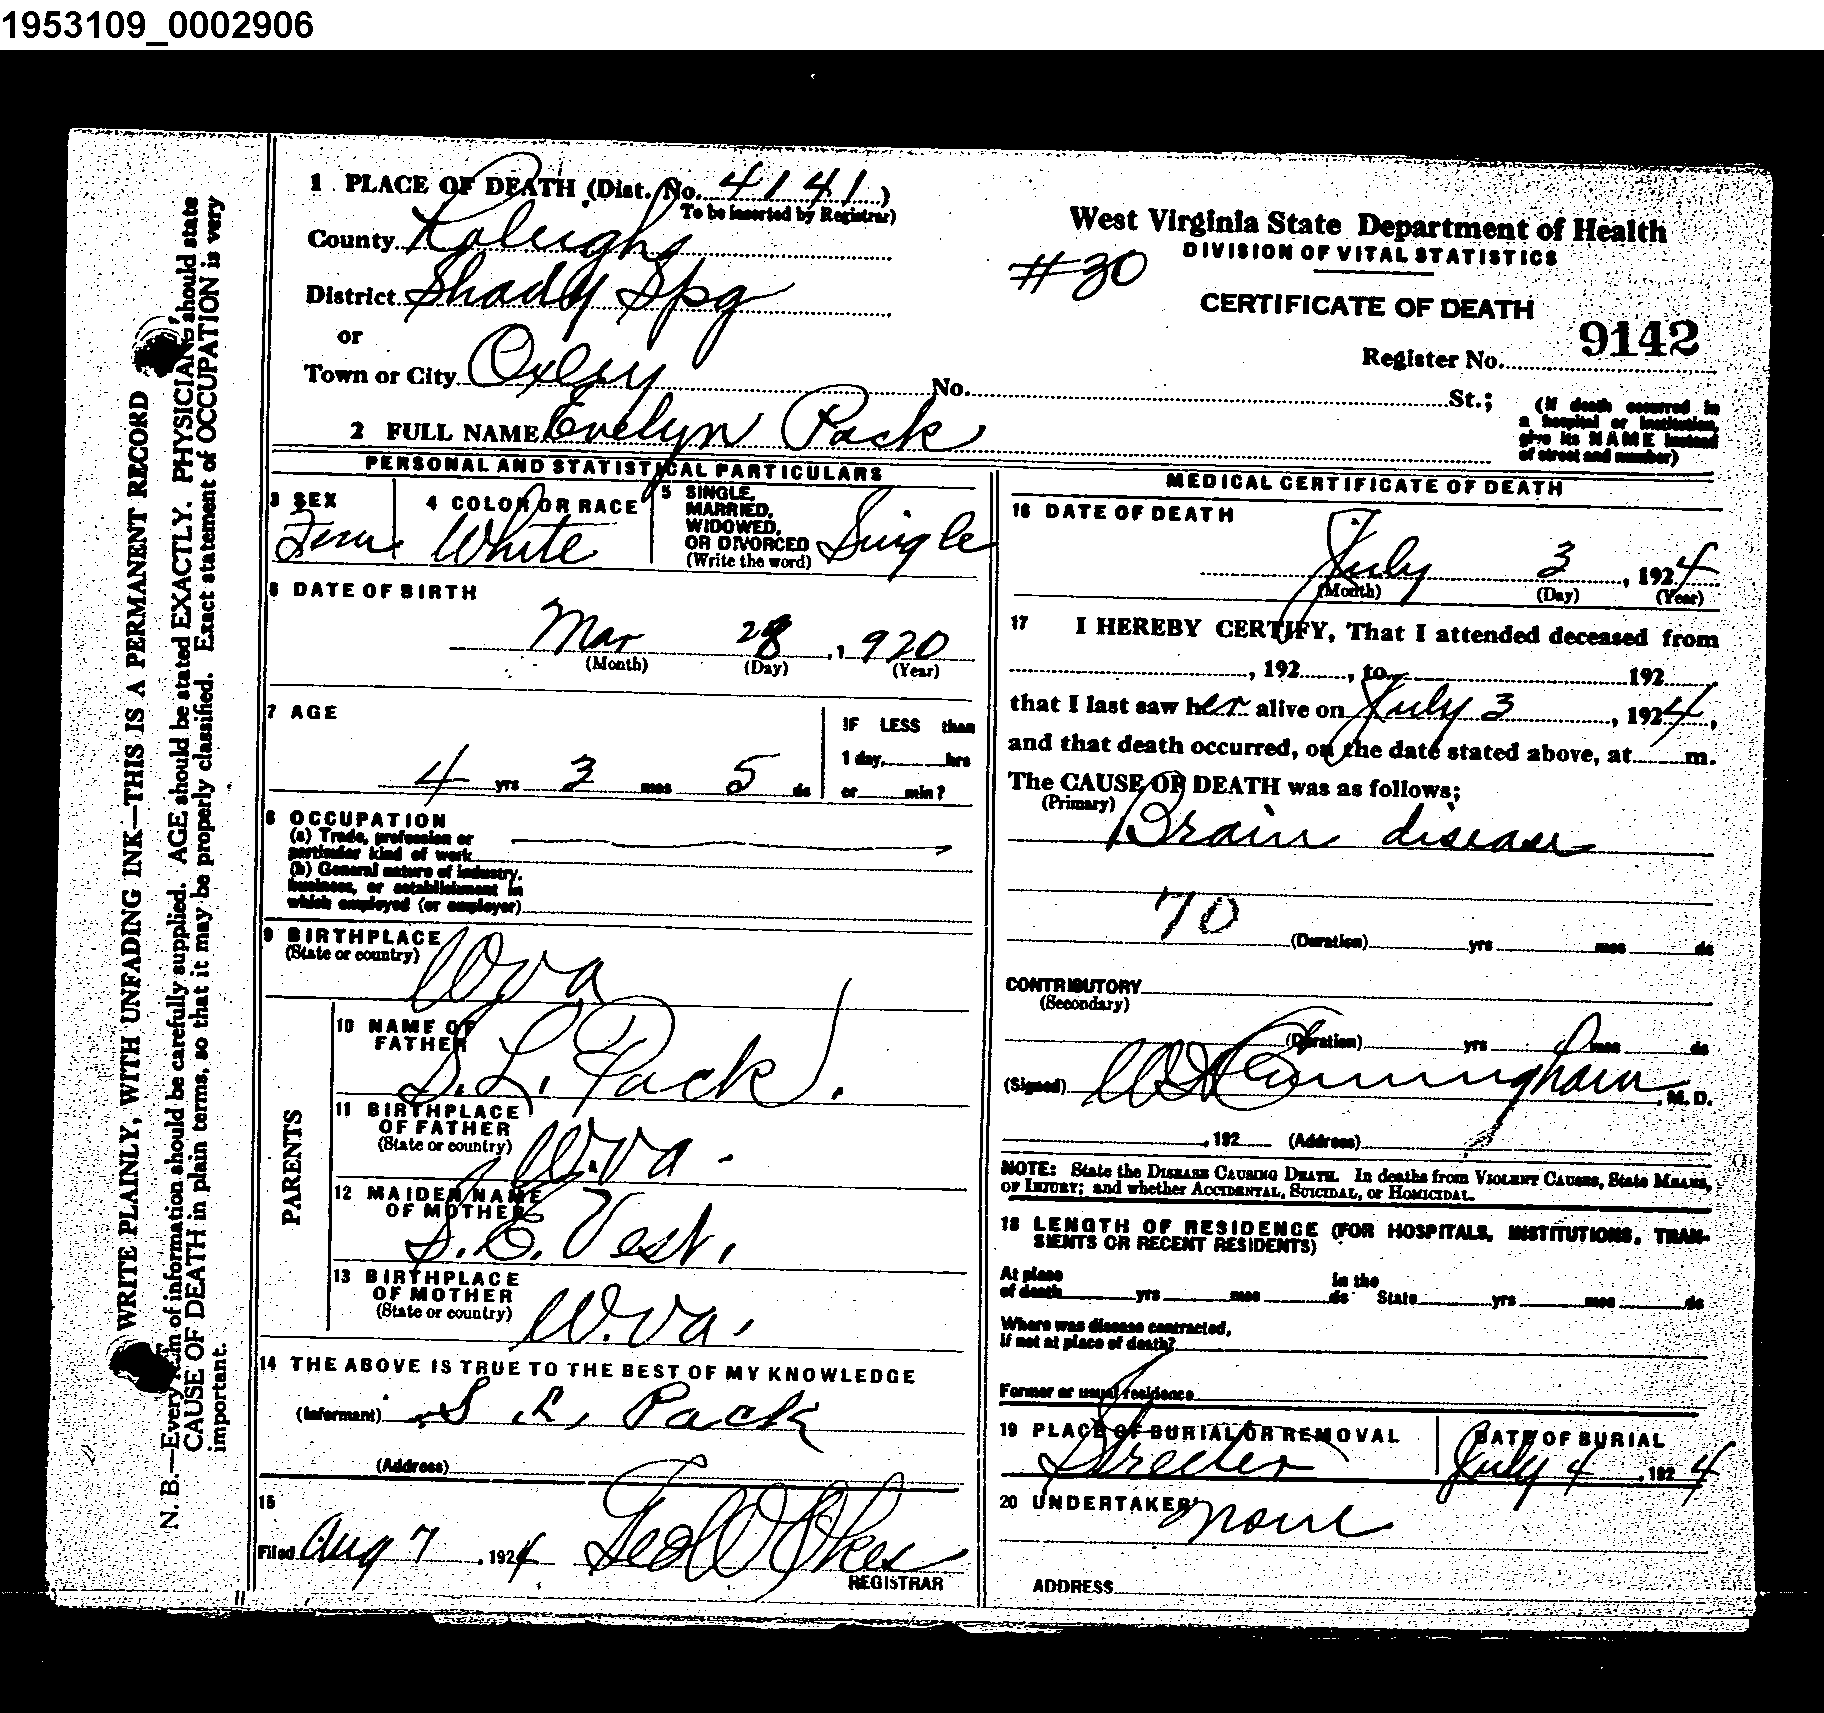 1953109_0002906
1 PLACE OF DEATH (Dist. No. 4141)
To be inserted by Registrar)
County Raleigh
District Shady Spg
or
Town or City Oxley No. St.;
2 FULL NAME Evelyn Pack
West Virginia State Department of Health
DIVISION OF VITAL STATISTICS
#30
CERTIFICATE OF DEATH
9142
Register No.
(If death occurred in
a hospital or institution,
give its NAME instead
of street and number)
PERSONAL AND STATISTICAL PARTICULARS
3 SEX
Fem
4 COLOR OR RACE
White
5 SINGLE,
MARRIED,
WIDOWED,
OR DIVORCED
(Write the word)
Single
6 DATE OF BIRTH
Mar 28, 1920
(Month) (Day) (Year)
7 AGE
4 yrs 3 mos 5 ds
IF LESS than
1 day, hrs
or min?
8 OCCUPATION
(a) Trade, profession or
particular kind of work
(b) General nature of industry,
business, or establishment in
which employed (or employer)
9 BIRTHPLACE
(State or country)
W va
PARENTS
10 NAME OF
FATHER
S. L. Pack.
11 BIRTHPLACE
OF FATHER
(State or country)
W. va.
12 MAIDEN NAME
OF MOTHER
S. E. Vest.
13 BIRTHPLACE
OF MOTHER
(State or country)
W. va.
14 THE ABOVE IS TRUE TO THE BEST OF MY KNOWLEDGE
(Informant) S. L. Pack
(Address)
15
Filed Aug 7, 1924 Geo W Okes
REGISTRAR
MEDICAL CERTIFICATE OF DEATH
16 DATE OF DEATH
July 3, 1924
(Month) (Day) (Year)
17 I HEREBY CERTIFY, That I attended deceased from
, 192 , to 192
that I last saw her alive on July 3, 1924,
and that death occurred, on the date stated above, at m.
The CAUSE OF DEATH was as follows;
(Primary)
Brain disease
70
(Duration) yrs mos ds
CONTRIBUTORY
(Secondary)
(Duration) yrs mos ds
(Signed) Cunningham, M. D.
, 192 (Address)
NOTE: State the DISEASE CAUSING DEATH. In deaths from VIOLENT CAUSES, State MEANS,
OF INJURY; and whether ACCIDENTAL, SUICIDAL, or HOMICIDAL.
18 LENGTH OF RESIDENCE (FOR HOSPITALS, INSTITUTIONS, TRAN-
SIENTS OR RECENT RESIDENTS)
At place in the
of death yrs mos ds State yrs mos ds
Where was disease contracted,
if not at place of death?
Former or usual residence
19 PLACE OF BURIAL OR REMOVAL
Streeter
DATE OF BURIAL
July 4, 1924
20 UNDERTAKER
none
ADDRESS
WRITE PLAINLY, WITH UNFADING INK—THIS IS A PERMANENT RECORD
N. B.—Every item of information should be carefully supplied. AGE should be stated EXACTLY. PHYSICIANS should state
CAUSE OF DEATH in plain terms, so that it may be properly classified. Exact statement of OCCUPATION is very
important.